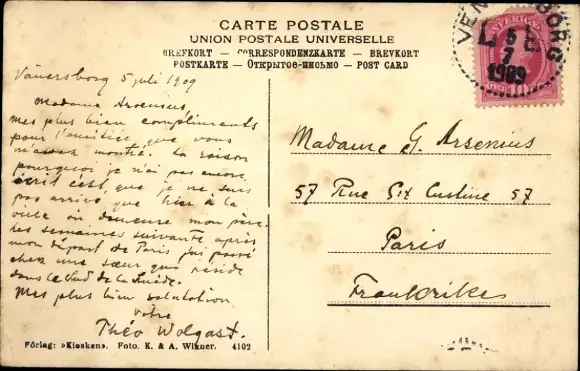 CARTE POSTALE
UNION POSTALE UNIVERSELLE
BREFKORT — CORRESPONDENZKARTE — BREVKORT
POSTKARTE — Открытое-письмо — POST CARD
VENERSBORG
5
7
1909
SVERIGE
10
Vänersborg 5 juli 1909
Madame Arsenius,
Mes plus bien compliments
pour l'amitiée que vous
m'avez montré. La raison
pourquoi je n'ai pas encore
écrit c'est, que je ne suis
pas arrivé que hier à la
ville où demeure mon père.
Les semaines suivante après
mon départ de Paris j'ai passé
chez une sœur qui réside
dans le Sud de la Suède.
Mes plus bien salutation
Votre
Théo Wolgast.
Madame G. Arsenius
57 Rue Six Custine 57
Paris
Frankrike
Förlag: »Kiosken». Foto. K. & A. Wikner. 4102